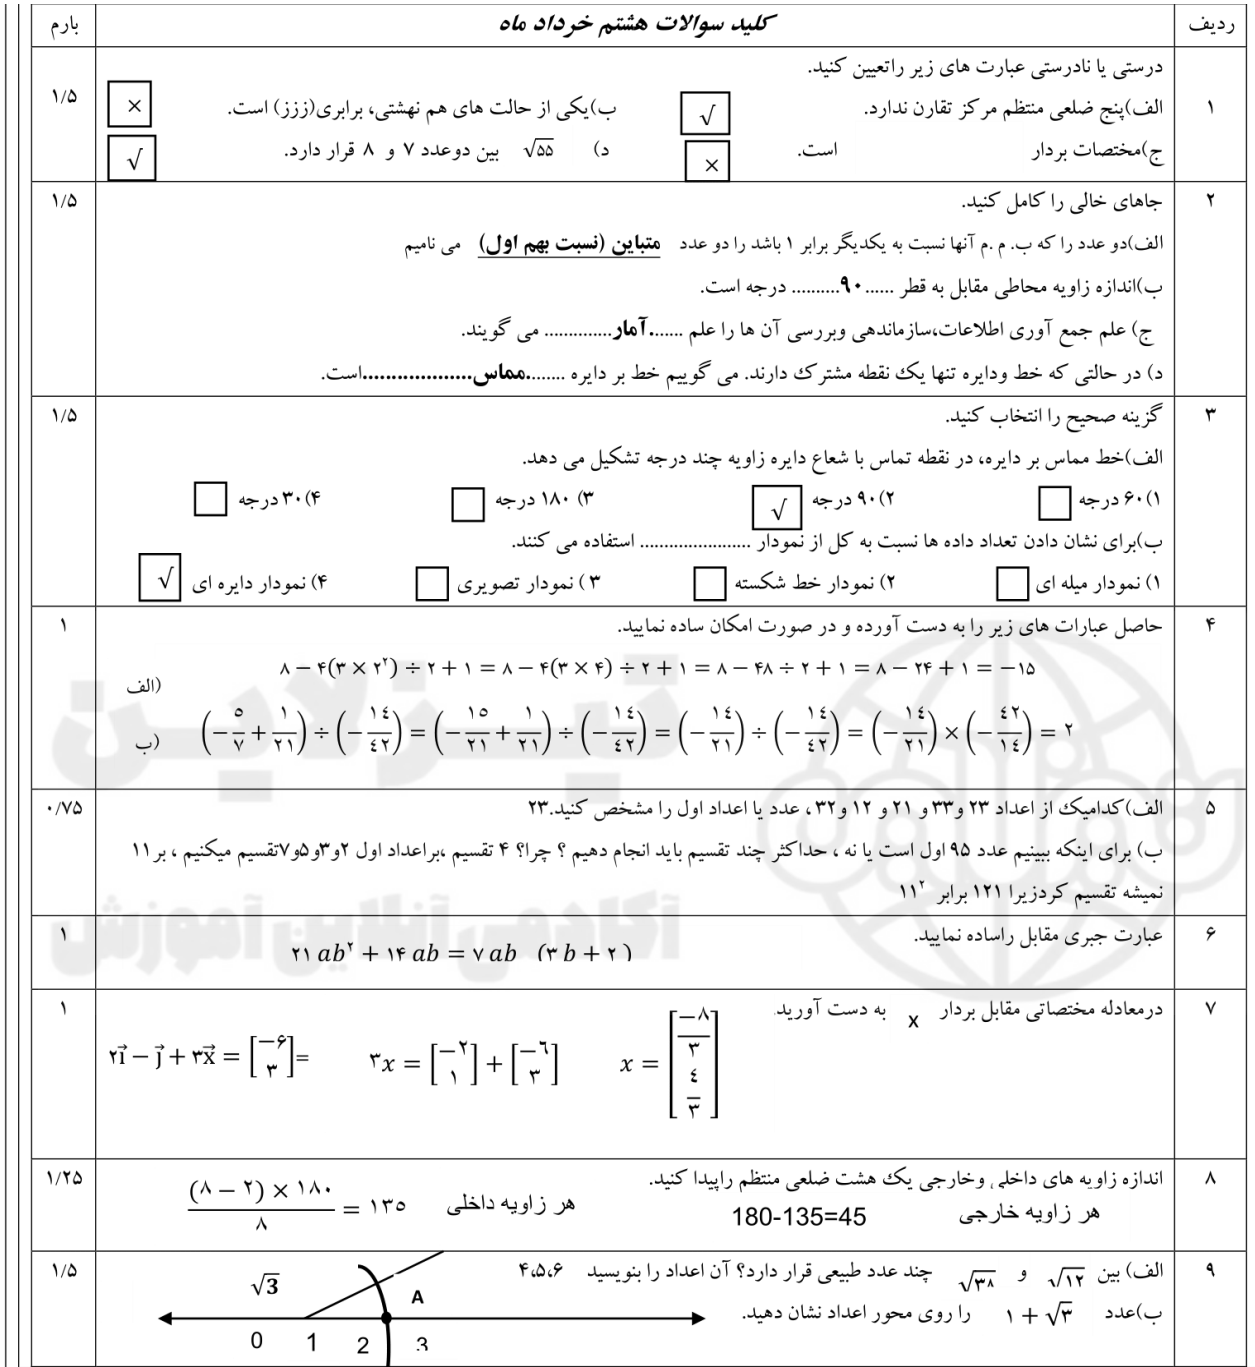 ردیف کلید سوالات هشتم خرداد ماه بارم
۱ درستی یا نادرستی عبارت های زیر راتعیین کنید. ۱/۵
الف)پنج ضلعی منتظم مرکز تقارن ندارد. √ ب)یکی از حالت های هم نهشتی، برابری(ززز) است. ×
ج)مختصات بردار است. × د) √۵۵ بین دوعدد ۷ و ۸ قرار دارد. √
۲ جاهای خالی را کامل کنید. ۱/۵
الف)دو عدد را که ب. م .م آنها نسبت به یکدیگر برابر ۱ باشد را دو عدد متباین (نسبت بهم اول) می نامیم
ب)اندازه زاویه محاطی مقابل به قطر ......۹۰.......... درجه است.
ج) علم جمع آوری اطلاعات،سازماندهی وبررسی آن ها را علم .......آمار.............. می گویند.
د) در حالتی که خط ودایره تنها یک نقطه مشترک دارند. می گوییم خط بر دایره ........مماس...................است.
۳ گزینه صحیح را انتخاب کنید. ۱/۵
الف)خط مماس بر دایره، در نقطه تماس با شعاع دایره زاویه چند درجه تشکیل می دهد.
۱)۶۰ درجه ۲)۹۰ درجه √ ۳) ۱۸۰ درجه ۴)۳۰ درجه
ب)برای نشان دادن تعداد داده ها نسبت به کل از نمودار ....................... استفاده می کنند.
۱) نمودار میله ای ۲) نمودار خط شکسته ۳ ) نمودار تصویری ۴) نمودار دایره ای √
۴ حاصل عبارات های زیر را به دست آورده و در صورت امکان ساده نمایید. ۱
الف) ۸ − ۴(۳ × ۲²) ÷ ۲ + ۱ = ۸ − ۴(۳ × ۴) ÷ ۲ + ۱ = ۸ − ۴۸ ÷ ۲ + ۱ = ۸ − ۲۴ + ۱ = −۱۵
ب) (−۵/۷ + ۱/۲۱) ÷ (−۱٤/٤۲) = (−۱۵/۲۱ + ۱/۲۱) ÷ (−۱٤/٤۲) = (−۱٤/۲۱) ÷ (−۱٤/٤۲) = (−۱٤/۲۱) × (−٤۲/۱٤) = ۲
۵ الف)کدامیک از اعداد ۲۳ و۳۳ و ۲۱ و ۱۲ و۳۲ ، عدد یا اعداد اول را مشخص کنید.۲۳ ۰/۷۵
ب) برای اینکه ببینیم عدد ۹۵ اول است یا نه ، حداکثر چند تقسیم باید انجام دهیم ؟ چرا؟ ۴ تقسیم ،براعداد اول ۲و۳و۵و۷تقسیم میکنیم ، بر ۱۱
نمیشه تقسیم کردزیرا ۱۲۱ برابر ۱۱²
۶ عبارت جبری مقابل راساده نمایید. ۱
۲۱ ab² + ۱۴ ab = ۷ ab (۳ b + ۲ )
۷ درمعادله مختصاتی مقابل بردار x به دست آورید. ۱
۲i⃗ − j⃗ + ۳x⃗ = [−۶ ۳]= ۳x = [−۲ ۱] + [−٦ ۳] x = [−۸/۳ ٤/۳]
۸ اندازه زاویه های داخلی وخارجی یک هشت ضلعی منتظم راپیدا کنید. ۱/۲۵
هر زاویه خارجی 180-135=45 هر زاویه داخلی (۸ − ۲) × ۱۸۰/۸ = ۱۳۵
۹ الف) بین √۱۲ و √۳۸ چند عدد طبیعی قرار دارد؟ آن اعداد را بنویسید ۴،۵،۶ ۱/۵
ب)عدد ۱ + √۳ را روی محور اعداد نشان دهید.
√3 A
0 1 2 3
تیزلاین
آکادمی آنلاین آموزش